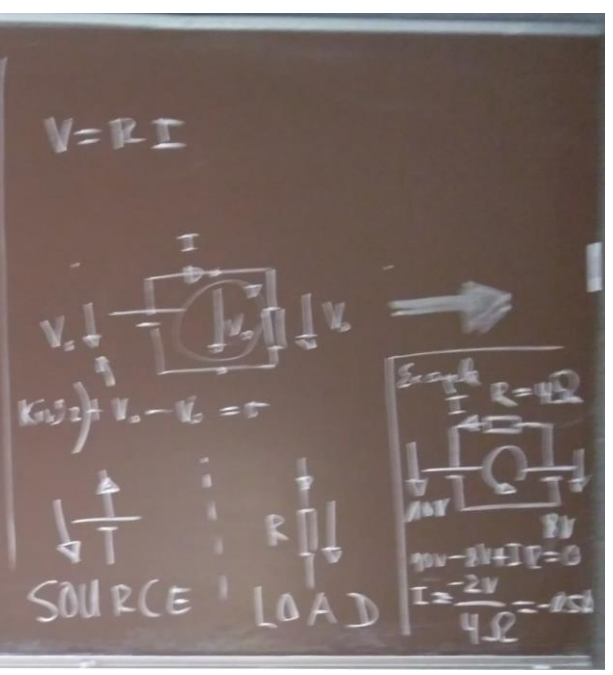 V = R I
I
V₀
V₀
V₀
+ V₀ - V₀ = 0
SOURCE
R
LOAD
Example
I R = 4Ω
10V
8V
10V - 8V + IR = 0
I = -2V / 4Ω = -0.5A